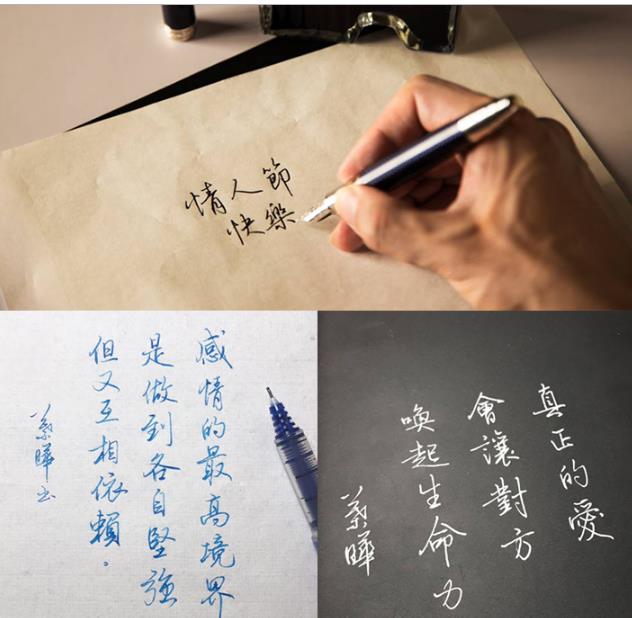 情人節
快樂
感情的最高境界
是做到各自堅強
但又互相依賴。
葉曄书
真正的愛
會讓對方
喚起生命力
葉曄